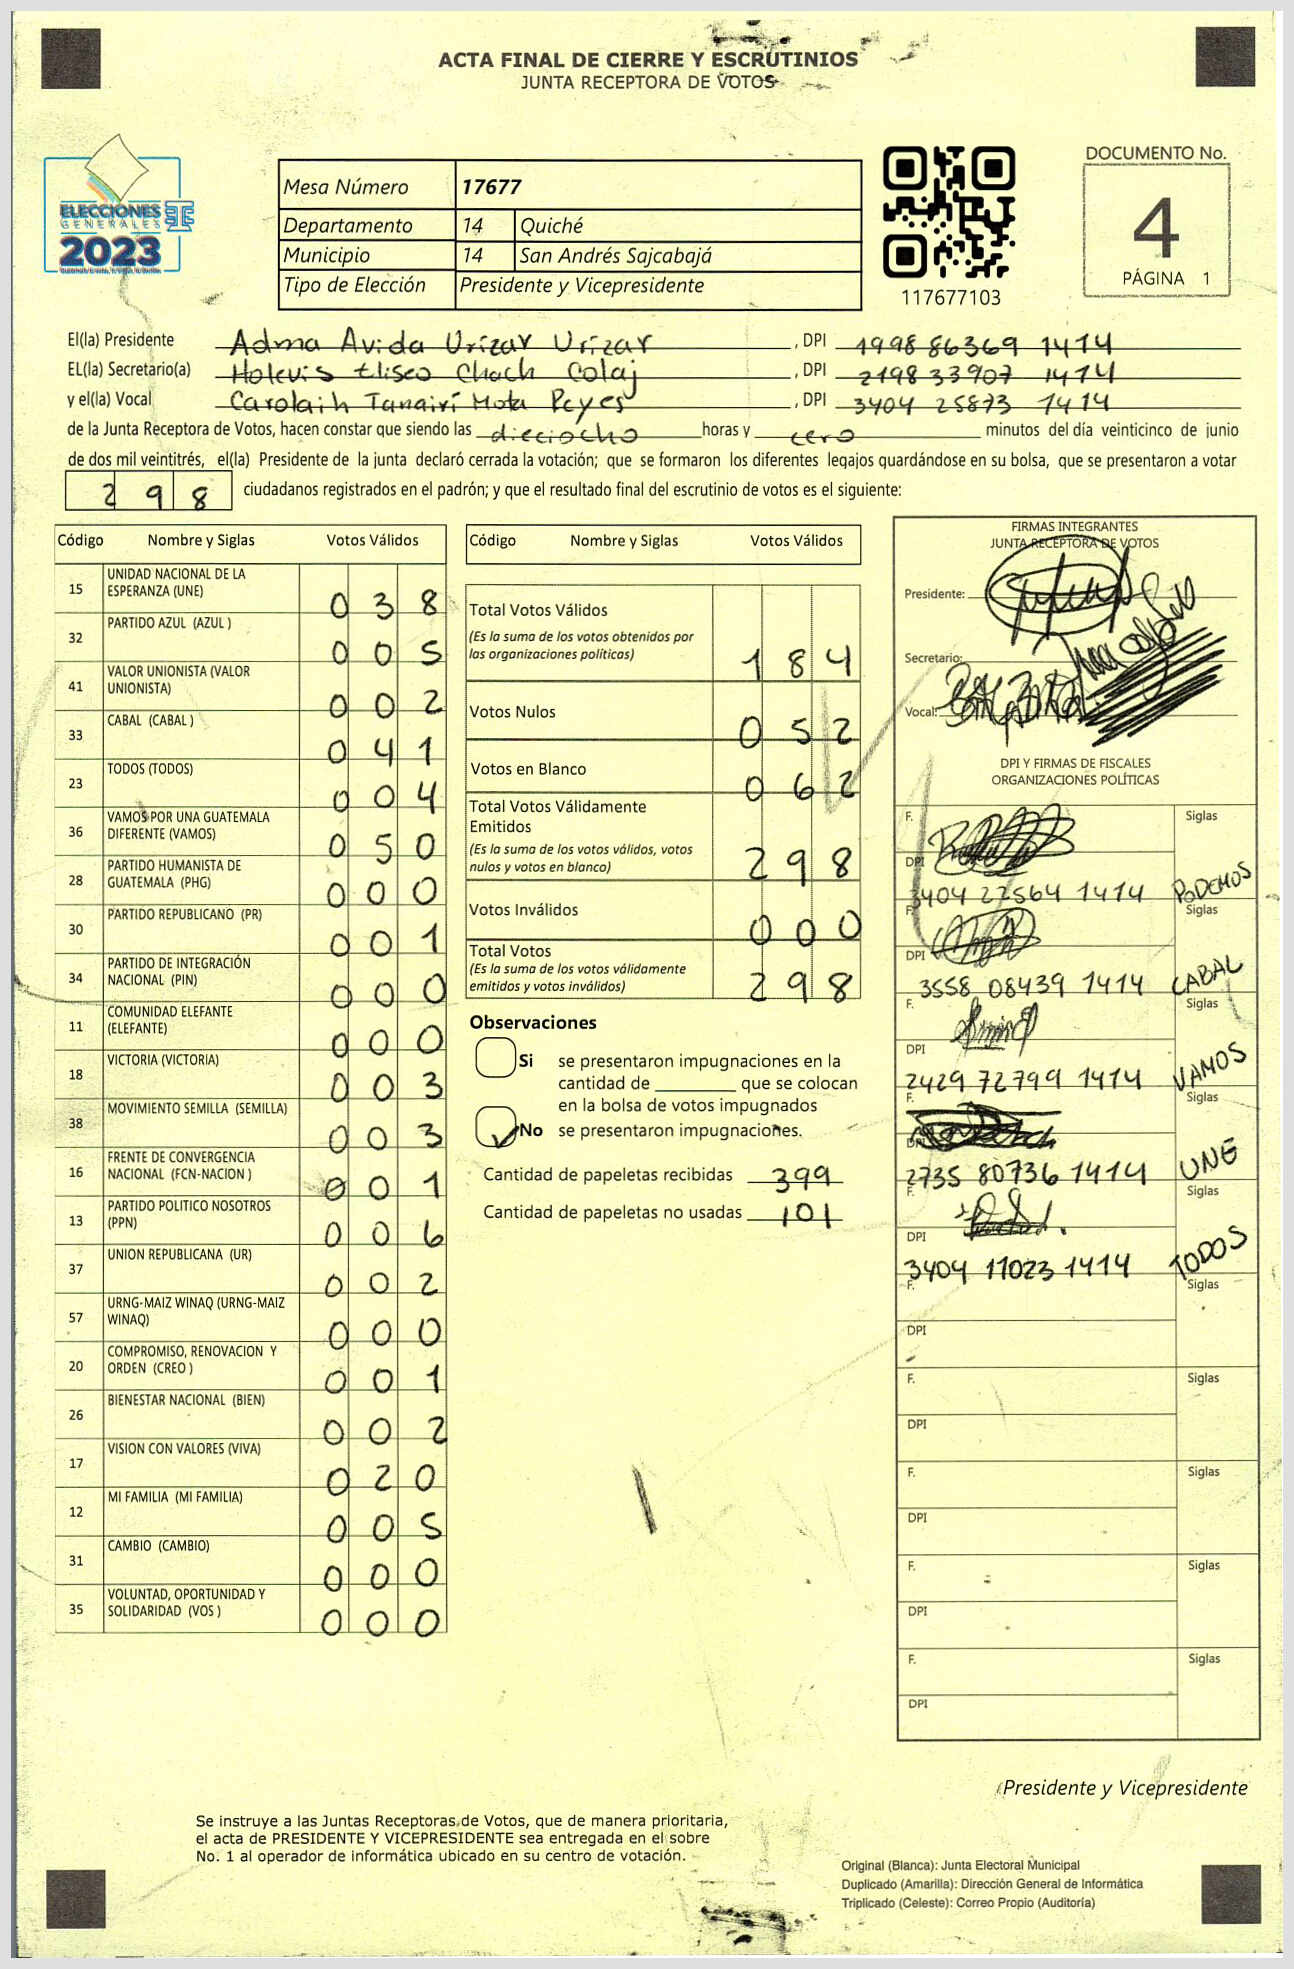 ACTA FINAL DE CIERRE Y ESCRUTINIOS
JUNTA RECEPTORA DE VOTOS
ELECCIONES
GENERALES
2023
Mesa Número 17677
Departamento 14 Quiché
Municipio 14 San Andrés Sajcabajá
Tipo de Elección Presidente y Vicepresidente
117677103
DOCUMENTO No.
4
PÁGINA 1
El(la) Presidente Adma Avida Urízar Urízar , DPI 1998 86369 1414
EL(la) Secretario(a) Holevis Eliseo Chach Colaj , DPI 2198 33907 1414
y el(la) Vocal Carolaih Tanairí Mota Reyes , DPI 3404 25873 1414
de la Junta Receptora de Votos, hacen constar que siendo las dieciocho horas y cero minutos del día veinticinco de junio
de dos mil veintitrés, el(la) Presidente de la junta declaró cerrada la votación; que se formaron los diferentes legajos guardándose en su bolsa, que se presentaron a votar
298 ciudadanos registrados en el padrón; y que el resultado final del escrutinio de votos es el siguiente:
Código Nombre y Siglas Votos Válidos
15 UNIDAD NACIONAL DE LA ESPERANZA (UNE) 038
32 PARTIDO AZUL (AZUL ) 005
41 VALOR UNIONISTA (VALOR UNIONISTA) 002
33 CABAL (CABAL ) 041
23 TODOS (TODOS) 004
36 VAMOS POR UNA GUATEMALA DIFERENTE (VAMOS) 050
28 PARTIDO HUMANISTA DE GUATEMALA (PHG) 000
30 PARTIDO REPUBLICANO (PR) 001
34 PARTIDO DE INTEGRACIÓN NACIONAL (PIN) 000
11 COMUNIDAD ELEFANTE (ELEFANTE) 000
18 VICTORIA (VICTORIA) 003
38 MOVIMIENTO SEMILLA (SEMILLA) 003
16 FRENTE DE CONVERGENCIA NACIONAL (FCN-NACION ) 001
13 PARTIDO POLITICO NOSOTROS (PPN) 006
37 UNION REPUBLICANA (UR) 002
57 URNG-MAIZ WINAQ (URNG-MAIZ WINAQ) 000
20 COMPROMISO, RENOVACION Y ORDEN (CREO ) 001
26 BIENESTAR NACIONAL (BIEN) 002
17 VISION CON VALORES (VIVA) 020
12 MI FAMILIA (MI FAMILIA) 005
31 CAMBIO (CAMBIO) 000
35 VOLUNTAD, OPORTUNIDAD Y SOLIDARIDAD (VOS ) 000
Código Nombre y Siglas Votos Válidos
Total Votos Válidos
(Es la suma de los votos obtenidos por
las organizaciones políticas) 184
Votos Nulos 052
Votos en Blanco 062
Total Votos Válidamente
Emitidos
(Es la suma de los votos válidos, votos
nulos y votos en blanco) 298
Votos Inválidos 000
Total Votos
(Es la suma de los votos válidamente
emitidos y votos inválidos) 298
Observaciones
Si se presentaron impugnaciones en la
cantidad de que se colocan
en la bolsa de votos impugnados
No se presentaron impugnaciones.
Cantidad de papeletas recibidas 399
Cantidad de papeletas no usadas 101
FIRMAS INTEGRANTES
JUNTA RECEPTORA DE VOTOS
Presidente:
Secretario:
Vocal:
DPI Y FIRMAS DE FISCALES
ORGANIZACIONES POLÍTICAS
F. Siglas
DPI 3404 22564 1414 PODEMOS
F. Siglas
DPI 3558 08439 1414 CABAL
F. Siglas
DPI 2429 72799 1414 VAMOS
F. Siglas
DPI 2735 80736 1414 UNE
F. Siglas
DPI 3404 11023 1414 TODOS
F. Siglas
DPI
F. Siglas
DPI
F. Siglas
DPI
F. Siglas
DPI
F. Siglas
DPI
Presidente y Vicepresidente
Se instruye a las Juntas Receptoras de Votos, que de manera prioritaria,
el acta de PRESIDENTE Y VICEPRESIDENTE sea entregada en el sobre
No. 1 al operador de informática ubicado en su centro de votación.
Original (Blanca): Junta Electoral Municipal
Duplicado (Amarilla): Dirección General de Informática
Triplicado (Celeste): Correo Propio (Auditoría)